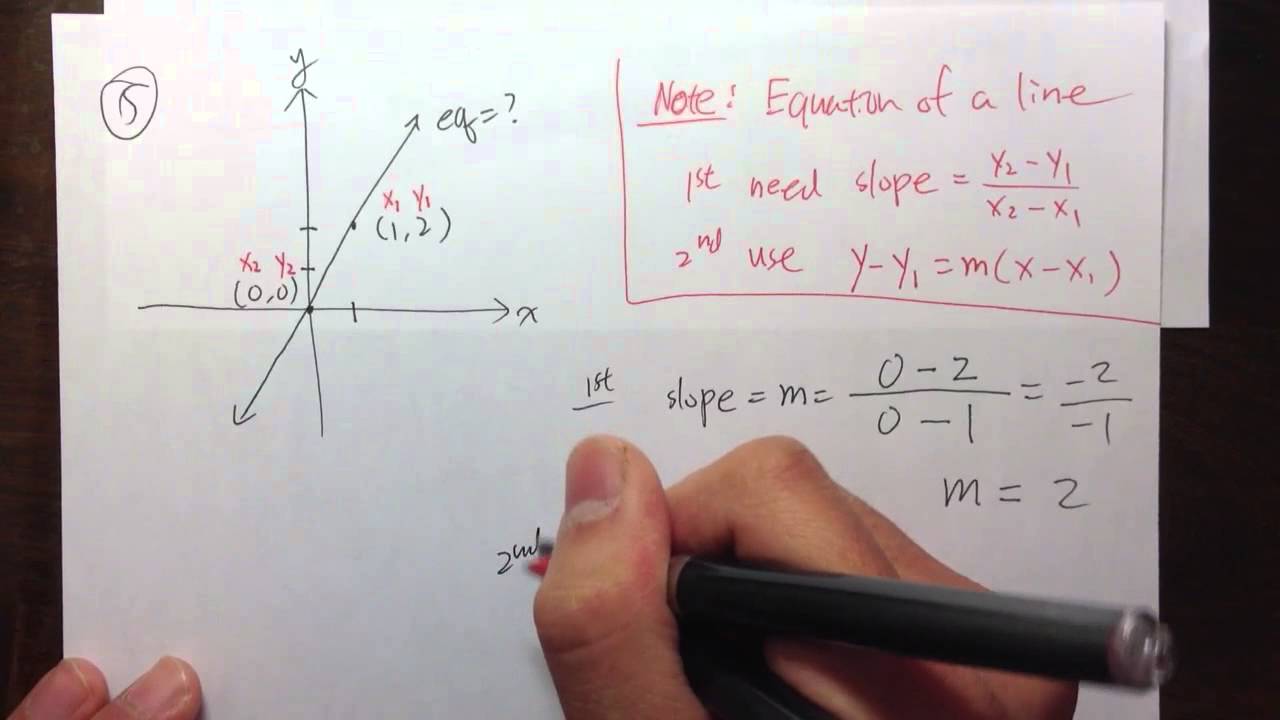 15
y
eq=?
x₁ y₁
(1,2)
x₂ y₂
(0,0)
x
Note: Equation of a line
1st need slope = y₂ - y₁ / x₂ - x₁
2nd use y-y₁ = m(x-x₁)
1st slope = m = 0-2 / 0-1 = -2 / -1
m = 2
2nd